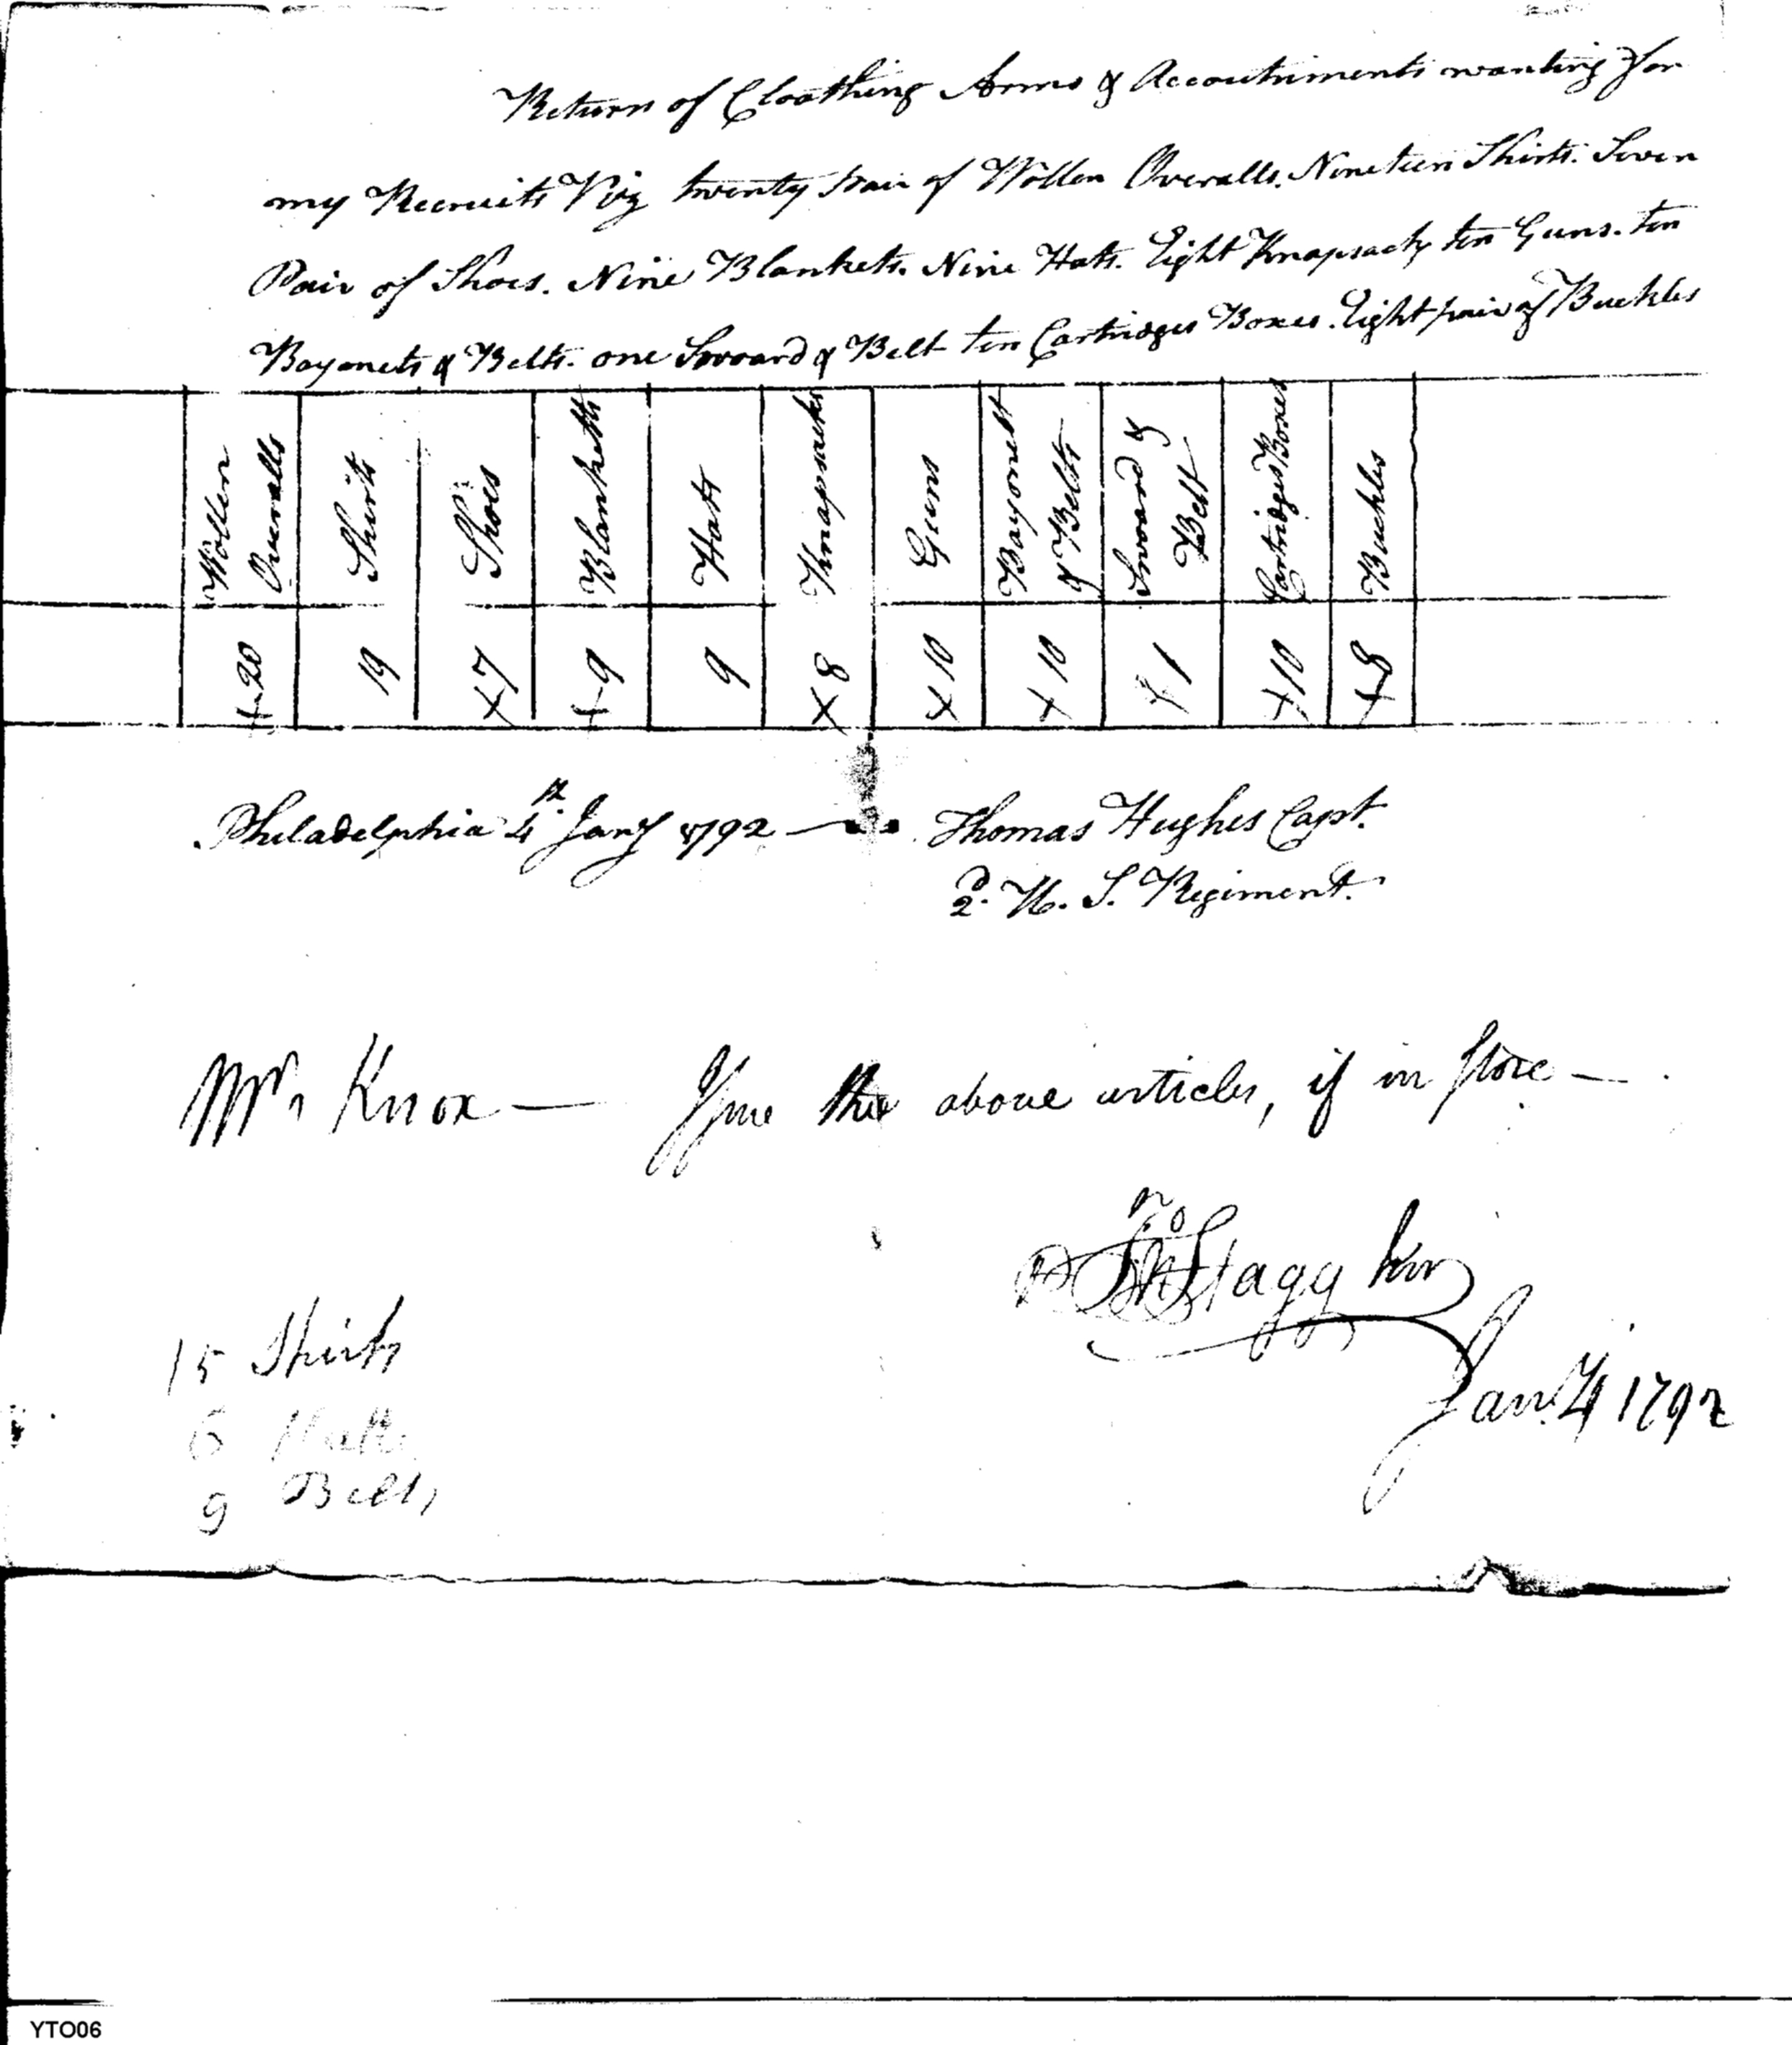 Return of Cloathing Arms & Accoutriments wanting for
my Recruits Viz twenty pair of Wollen Overalls. Nineteen Shirts. Seven
Pair of Shoes. Nine Blankets. Nine Hats. Eight Knapsacks ten Guns. ten
Bayonets & Belts. one Sword & Belt ten Cartridges Boxes. Eight pair of Buckles
Wollen Overalls Shirts Shoes Blanketts Hats Knapsacks Guns Bayonett & Belts Sword & Belt Cartridges Boxes Buckles
+20 19 x7 +9 9 x8 x10 x10 +1 x10 +8
Philadelphia 4th Jany 1792 — Thomas Hughes Capt.
2d. U. S. Regiment.
Mr. Knox — Issue the above articles, if in store —
Jno Stagg Junr
Jany 4 1792
15 Shirts
6 Hatts
9 Belts
YTO06